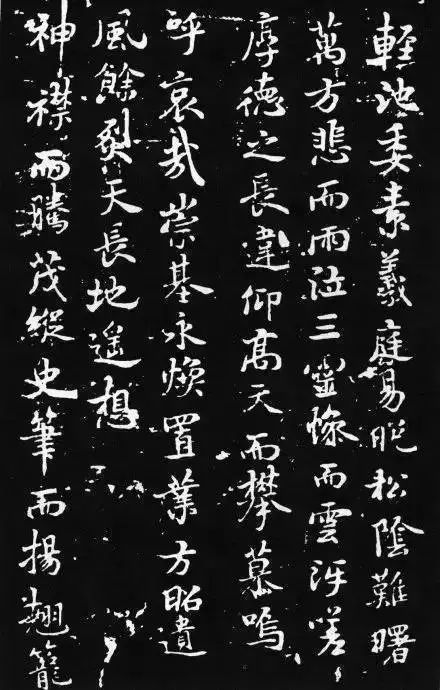 輕池委素羲庭易晚松陰難曙
萬方悲而雨泣三靈慘而雲泝嗟
厚德之長違仰高天而攀慕嗚
呼哀哉崇基永煥置業方昭遺
風餘烈天長地遙想
神襟而騰茂縱史筆而揚翹籠